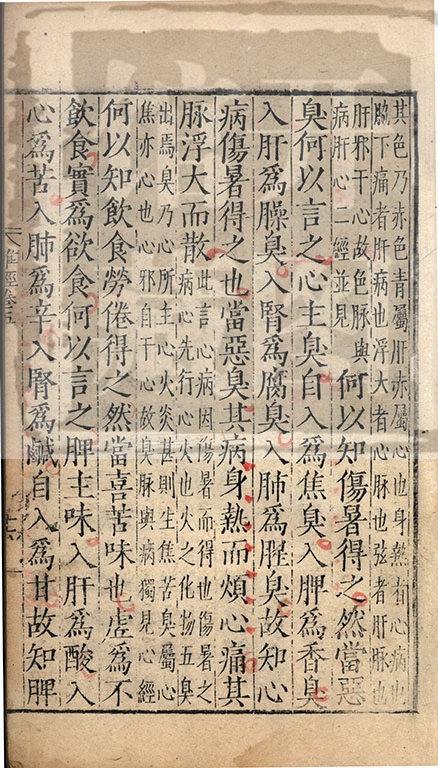 其色乃赤色青屬肝赤屬心也身熱者心病也
脇下痛者肝病也浮大者心脉也弦者肝脉也
肝邪干心故色脉與
病肝心二經並見
何以知傷暑得之然當惡
臭何以言之心主臭自入爲焦臭入脾爲香臭
入肝爲臊臭入腎爲腐臭入肺爲腥臭故知心
病傷暑得之也當惡臭其病身熱而煩心痛其
脉浮大而散
此言心病因傷暑而得也傷暑之
病心先行心火也火之化物五臭
出焉臭乃心所主心火炎甚則生焦苦臭屬心
焦亦心也心邪自干心故臭脉與病獨見心經
何以知飲食勞倦得之然當喜苦味也虛爲不
飲食實爲欲食何以言之脾主味入肝爲酸入
心爲苦入肺爲辛入腎爲鹹自入爲甘故知脾